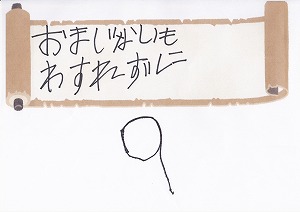 おまじないも
わすれずに